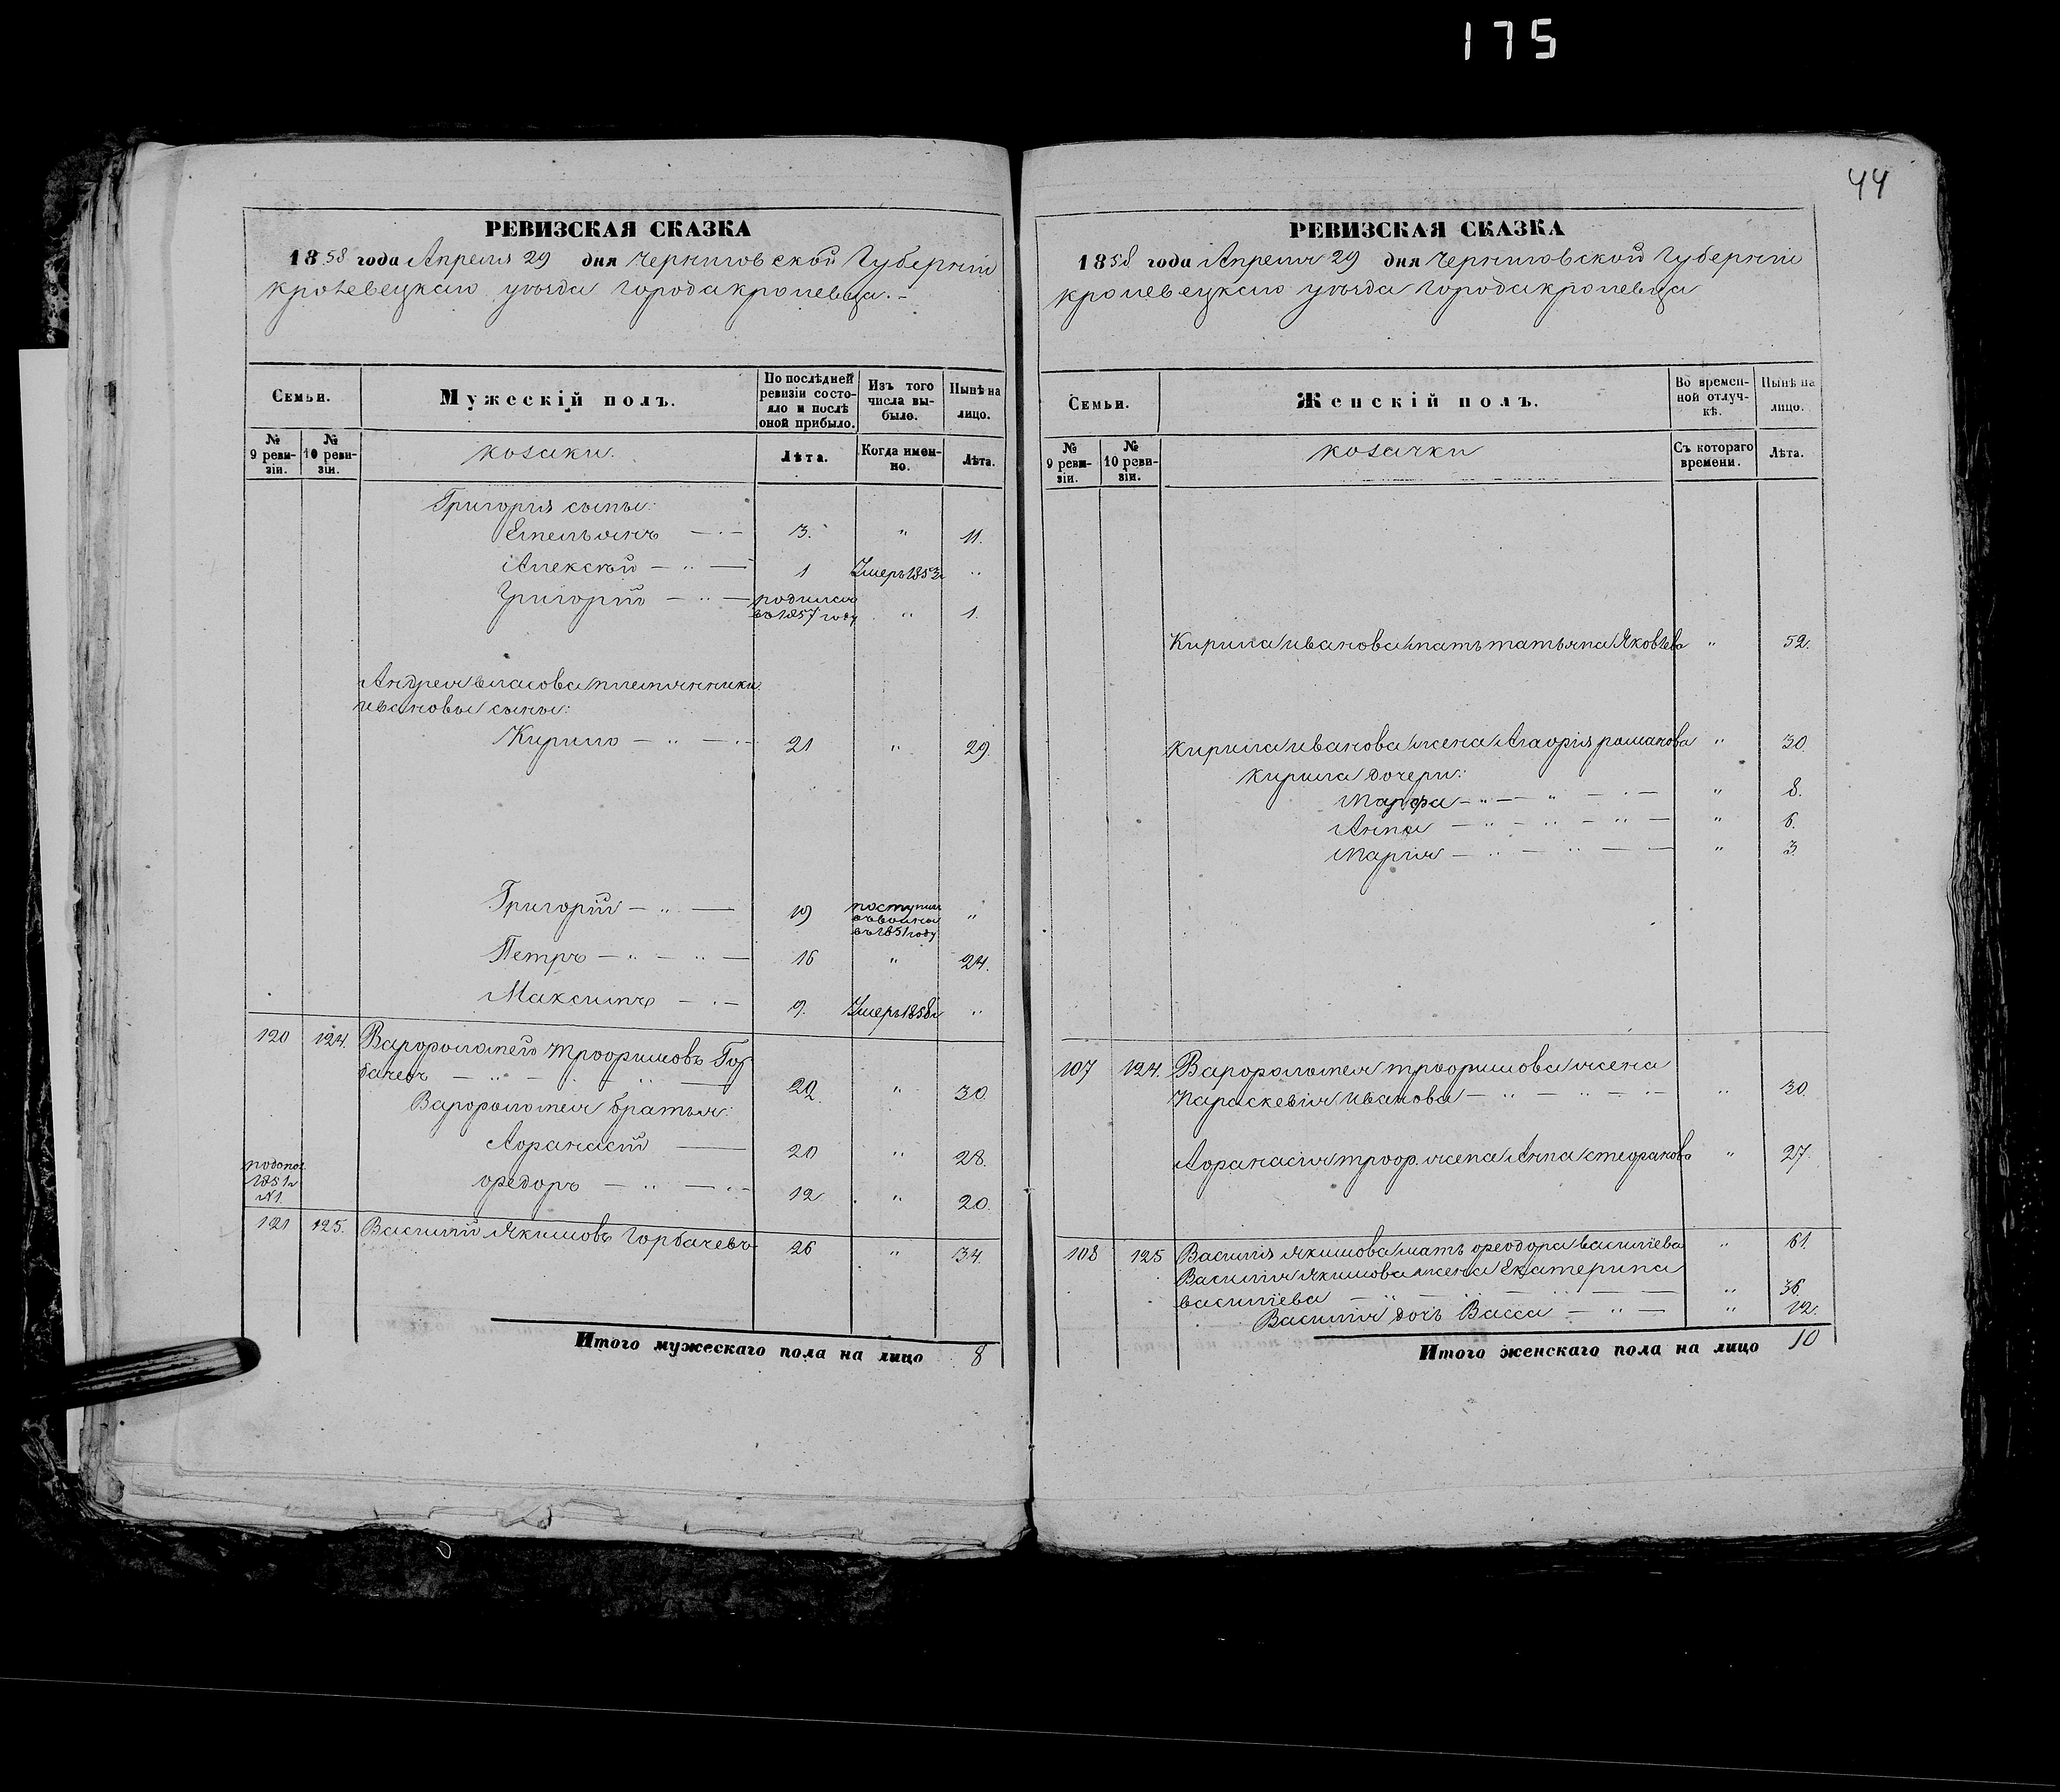 175
44
РЕВИЗСКАЯ СКАЗКА
1858 года Апреля 29 дня Черниговской Губерніи
кролевецкаго уѣзда города кролевца.
Семьи.
Мужескій полъ.
По послѣдней ревизіи состояло и послѣ оной прибыло.
Изъ того числа выбыло.
Нынѣ на лицо.
№ 9 ревизіи.
№ 10 ревизіи.
козаки.
Лѣта.
Когда именно.
Лѣта.
Григорія сыны:
Емельянъ — 3. " 11.
Алексѣй — " — 1 Умеръ 1853г "
Григорій — " — родился въ 1857 году " 1.
Андрея власова племянники
ивановы сыны:
Кирило — " — 21 " 29.
Григорій — " — 19 поступил въ 1851 году "
Петръ — " — " — 16 " 24.
Максимъ — 9. Умеръ 1858г "
120 124. Варфоломей трофимовъ Гор
бачевъ — " — 22 " 30.
Варфоломея братья:
Афанасій — 20 " 28.
1851г №1.
федоръ — " — 12. " 20.
121 125. Василий Якимовъ Горбачевъ 26 " 34.
Итого мужескаго пола на лицо 8
РЕВИЗСКАЯ СКАЗКА
1858 года Апреля 29 дня Черниговской Губерніи
кролевецкаго уѣзда города кролевца
Семьи.
Женскій полъ.
Во временной отлучкѣ.
Нынѣ на лицо.
№ 9 ревизіи.
№ 10 ревизіи.
козачки
Съ котораго времени.
Лѣта.
Кирила иванова мать татьяна Яковлева " 52.
Кирила иванова жена Агафія романова " 30.
кирила дочери:
Марфа — " — " — " 8.
Анна — " — " — " — " 6.
Марія — " — " — " 3.
107 124. Варфоломея трофимова жена
Параскевія иванова — " — " — " 30.
Афанасія троф. жена Анна стефанова " 27.
108 125 Василія Якимова мать феодора василіева " 61.
Василія Якимова жена Екатерина
василіева — " — " 36.
Василія дочь Васса — " — " 12.
Итого женскаго пола на лицо 10